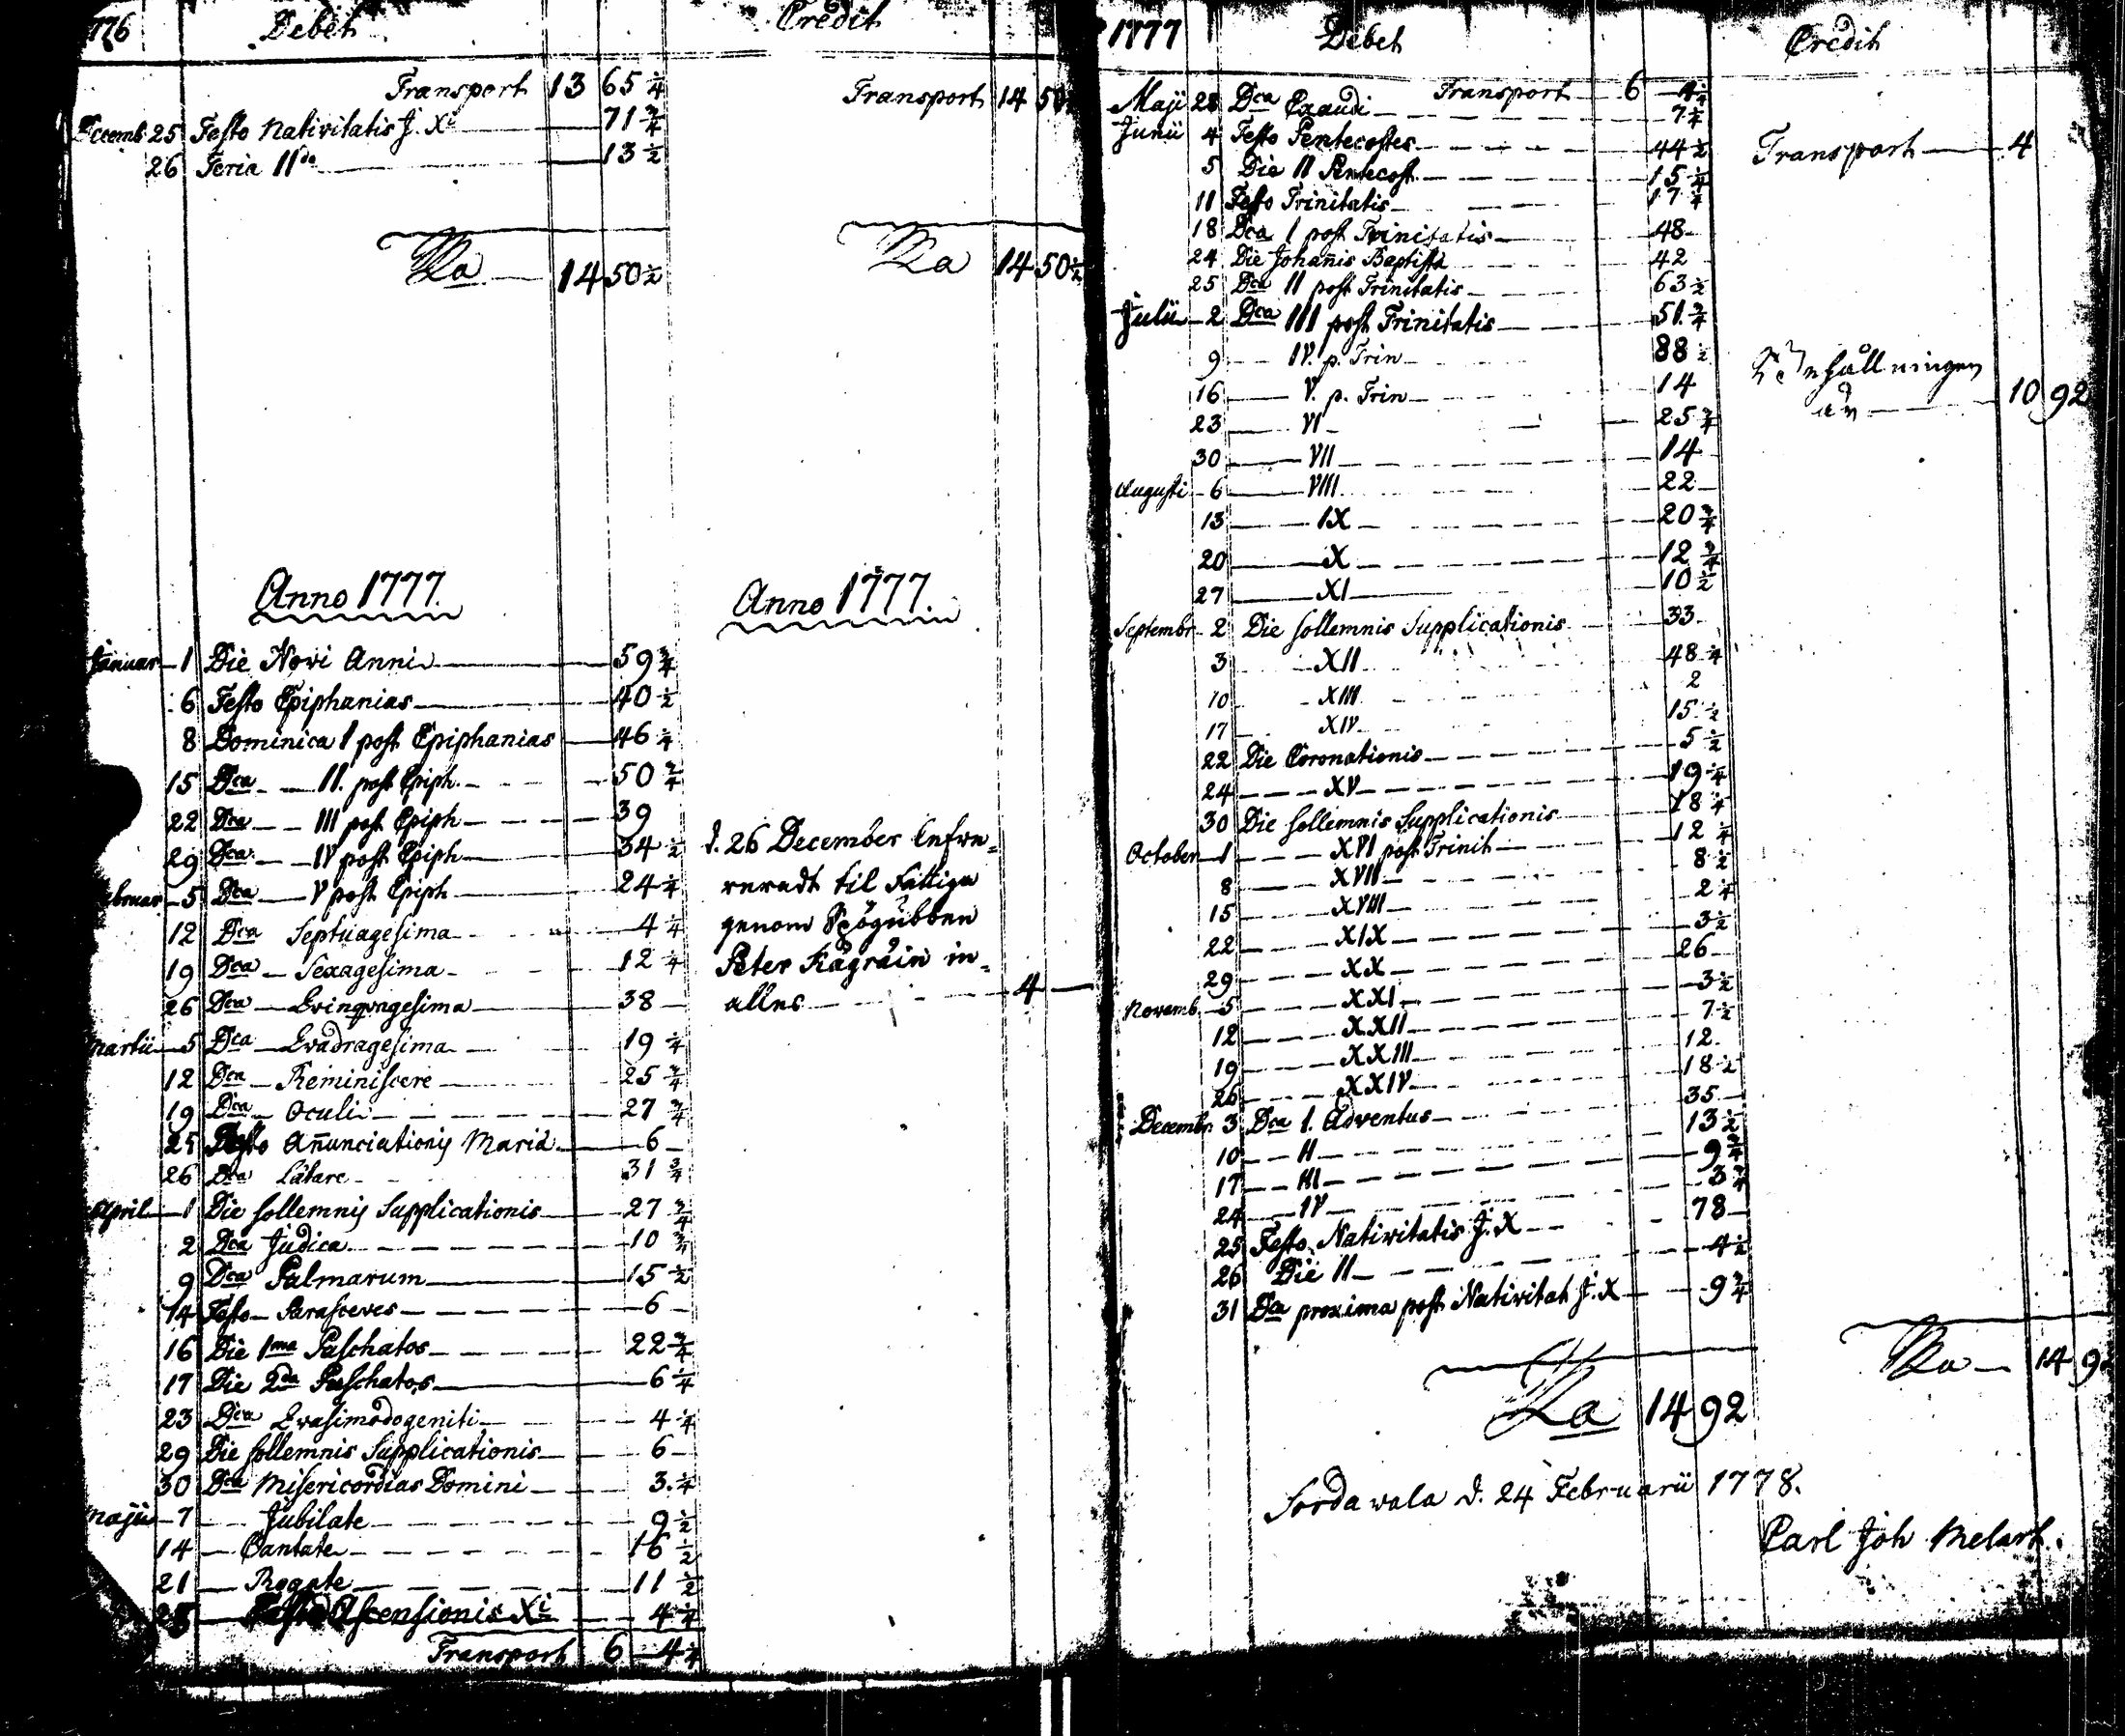 1776 Debet Credit
Transport 13 65 1/4
Decemb 25 Festo Nativitatis J. Xi 71 3/4
26 Feria IIda 13 1/2
Ra 14 50 1/2
Transport 14 50
Ra 14 50 1/2
Anno 1777.
Januar 1 Die Novi Anni 59 3/4
6 Festo Epiphanias 40 1/2
8 Dominica I post Epiphanias 46 1/4
15 Dca II. post Epiph. 50 3/4
22 Dca III post Epiph 39
29 Dca IV post Epiph 34 1/2
ebruar 5 Dca V post Epiph 24 1/4
12 Dca Septuagesima 4 1/4
19 Dca Sexagesima 12 1/4
26 Dca Qvinqvagesima 38
Martii 5 Dca Qvadragesima 19 1/4
12 Dca Reminiscere 25 3/4
19 Dca Oculi 27 3/4
25 Festo Anunciationis Mariä 6
26 Dca Lätare 31 3/4
April 1 Die sollemnis Supplicationis 27 3/4
2 Dca Judica 10 3/4
9 Dca Palmarum 15 1/2
14 Festo Parasceves 6
16 Die 1ma Paschatos 22 3/4
17 Die 2da Paschatos 6 1/4
23 Dca Qvasimodogeniti 4 1/4
29 Die sollemnis Supplicationis 6
30 Dca Misericordias Domini 3 1/4
Maji 7 Jubilate 9 1/2
14 Cantate 16 1/2
21 Rogate 11 1/2
25 Festo Ascensionis Xi 4 1/4
Transport 6 4 1/4
Anno 1777.
d. 26 December
til Fattiga
genom
Peter in=
alles 4
1777 Debet Credit
Transport 6 4 1/4
Maji 28 Dca Exaudi 7 1/4
Junii 4 Festo Pentecostes 44 1/2
5 Die II Pentecost. 15 1/4
11 Festo Trinitatis 17 1/4
18 Dca I post Trinitatis 48
24 Die Johañis Baptistä 42
25 Dca II post Trinitatis 63 1/2
Julii 2 Dca III post Trinitatis 51 3/4
9 IV. p. Trin 88 1/2
16 V. p. Trin 14
23 VI 25 3/4
30 VII 14
Augusti 6 VIII 22
13 IX 20 3/4
20 X 12 3/4
27 XI 10 1/2
Septembr 2 Die sollemnis Supplicationis 33
3 XII 48 1/4
10 XIII 2
17 XIV 15 1/2
22 Die Coronationis 5 1/2
24 XV 19 1/4
30 Die sollemnis Supplicationis 18 1/4
October 1 XVI post Trinit 12 1/4
8 XVII 8 1/2
15 XVIII 2 1/4
22 XIX 3 1/2
29 XX 26
Novemb. 5 XXI 3 1/2
12 XXII 7 1/2
19 XXIII 12
26 XXIV 18 1/2
Decembr. 3 Dca 1. Adventus 35
10 II 13 1/2
17 III 9 3/4
24 IV 3 3/4
25 Festo Nativitatis J. X 78
26 Die II 4 1/2
31 Dca proxima post Nativitat J. X 9 3/4
Ra 14 92
Transport 4
10 92
Ra 14 92
Sordavala d. 24 Februarii 1778.
Carl Joh Melart.